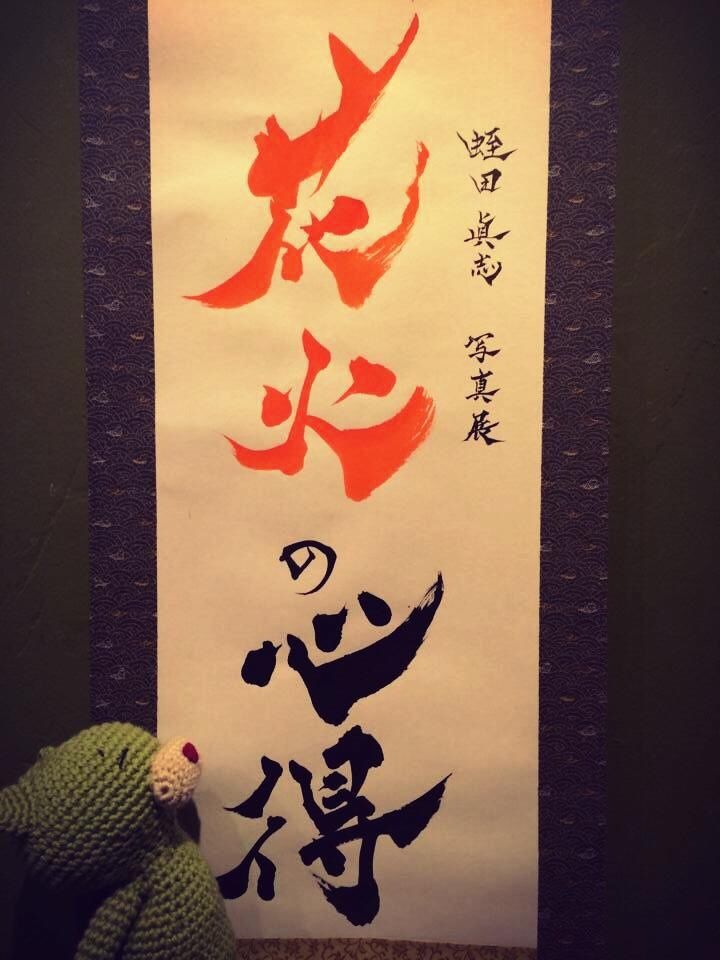 蛭田眞志 写真展
花火の心得